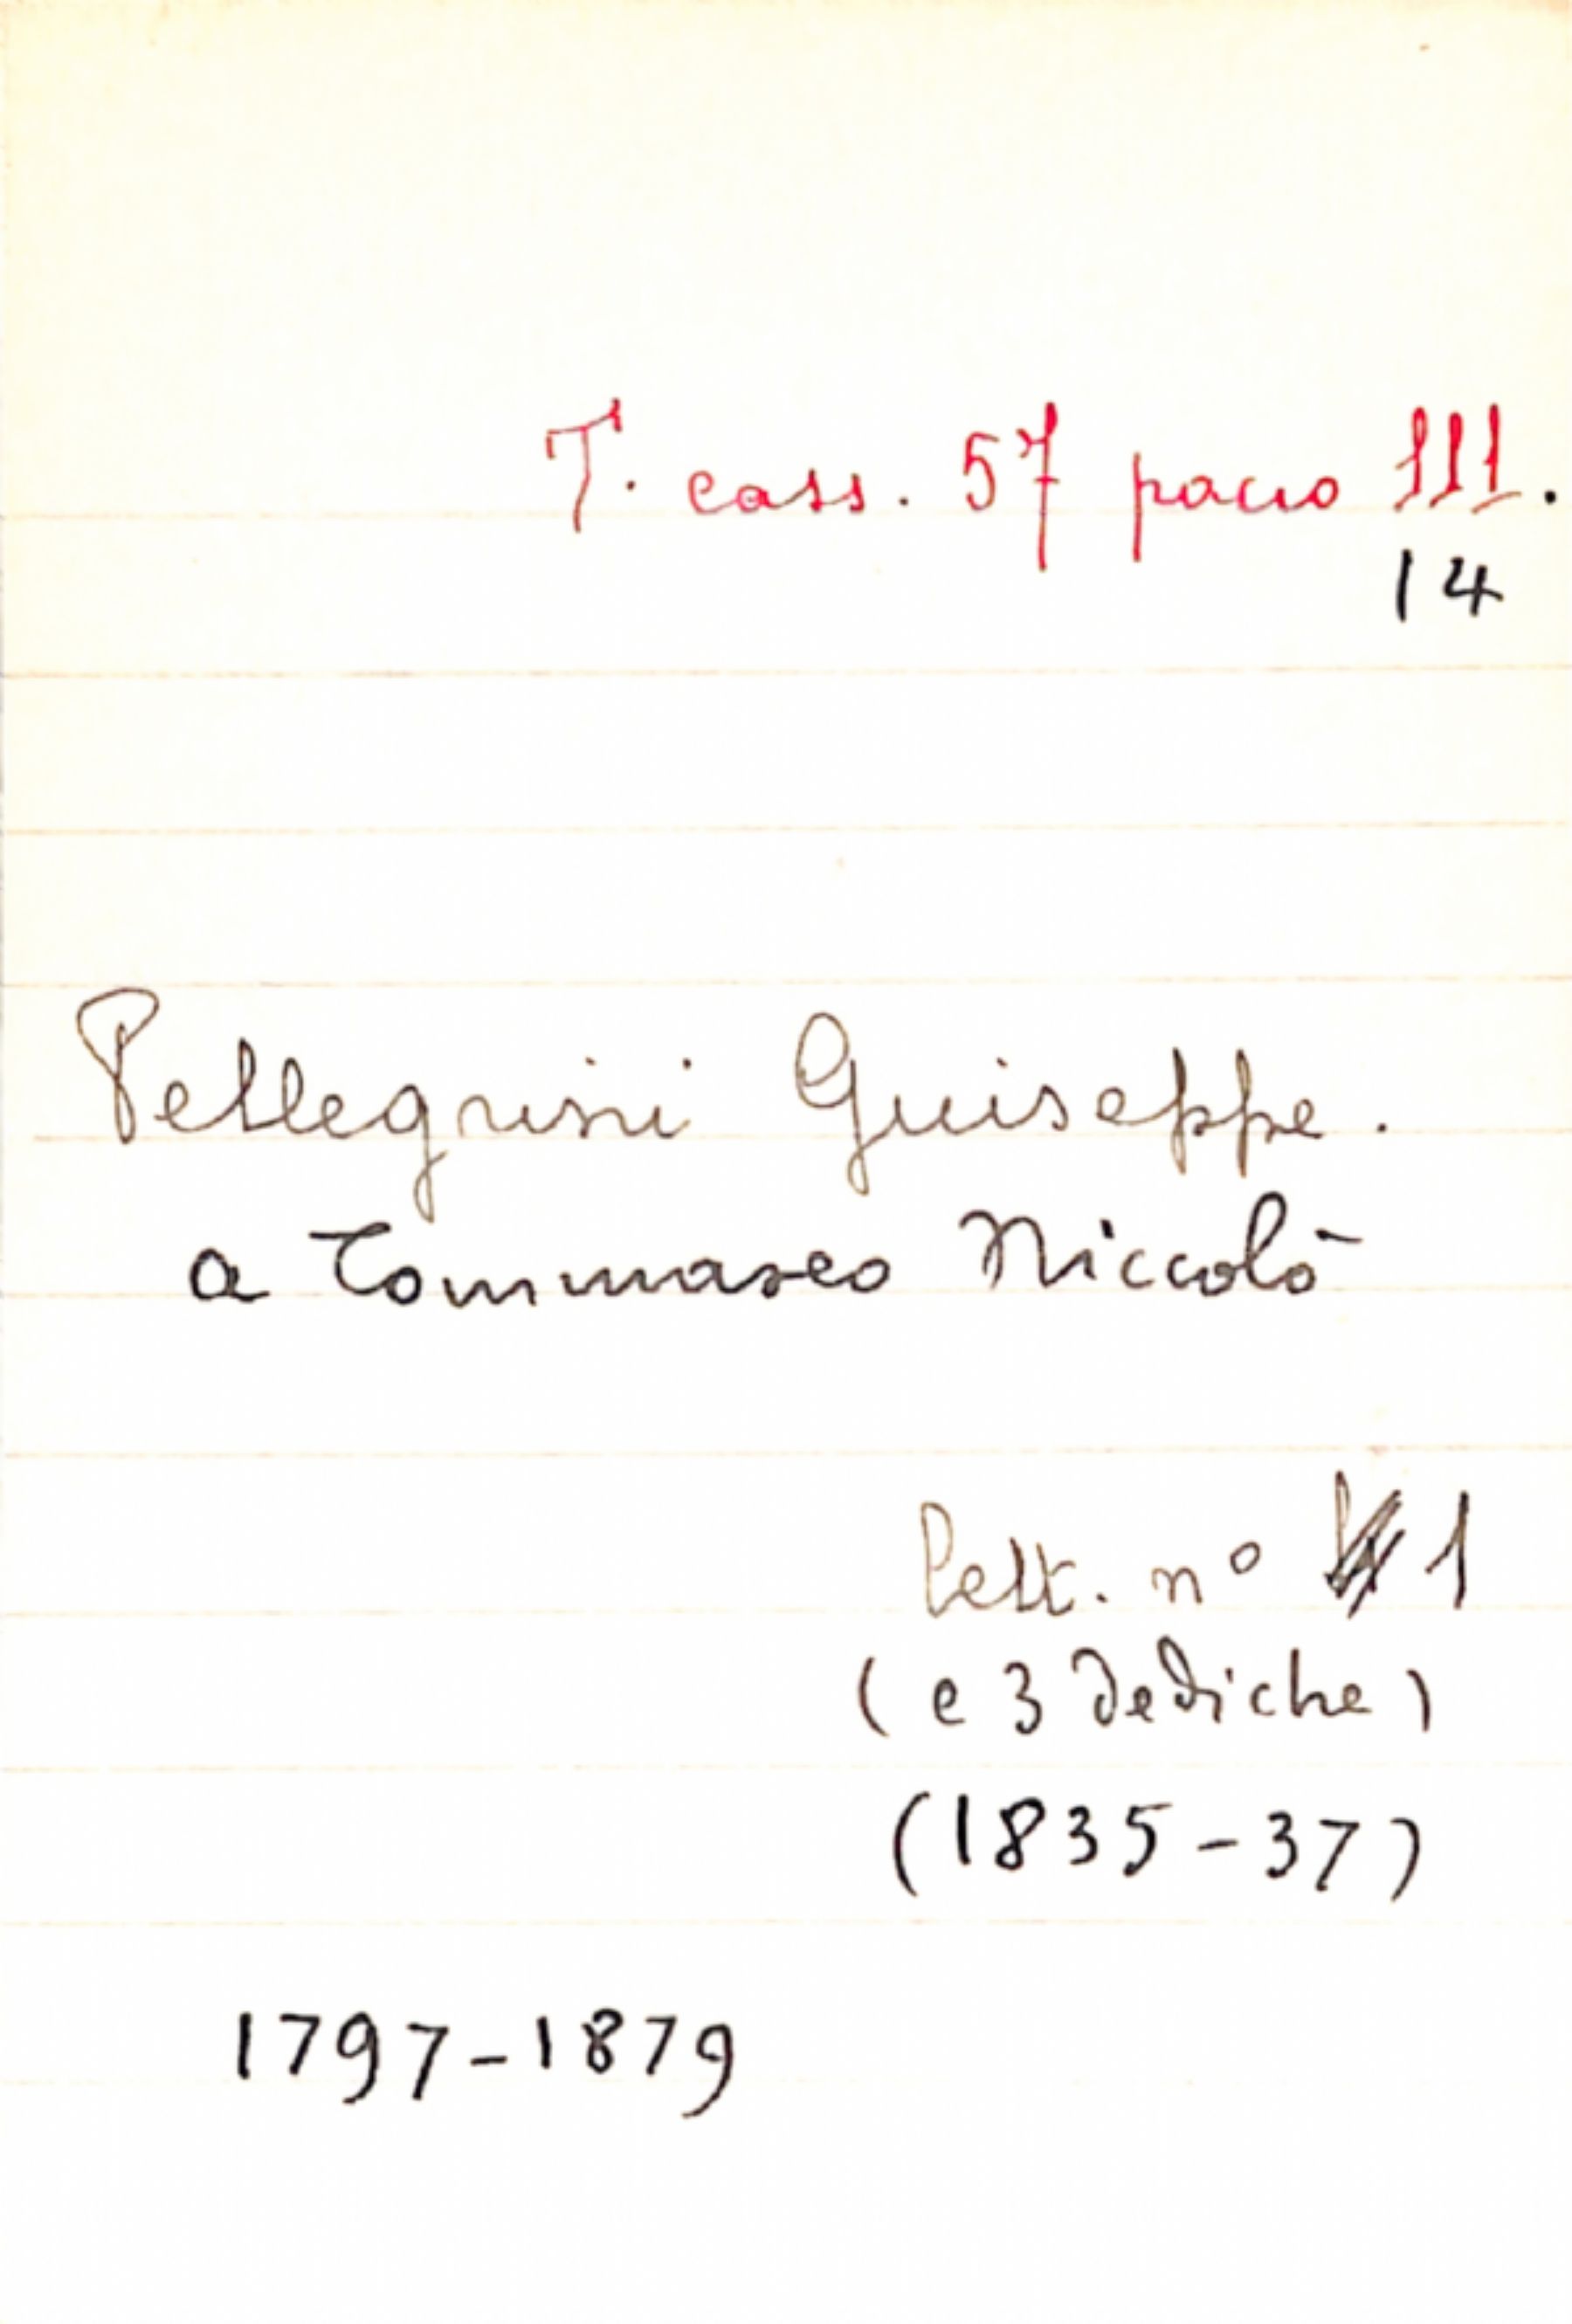 T. cass. 57 pacco III.
14
Pellegrini Giuseppe.
a Tommaseo Niccolò
Lett. nº 1
(e 3 dediche)
(1835-37)
1797-1879